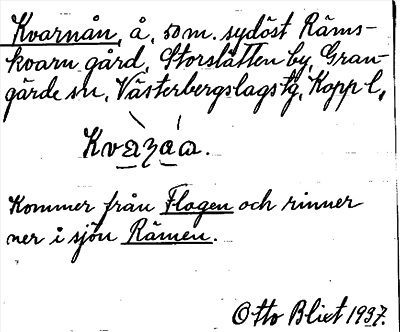 Kvarnån, å, 50 m. sydöst Räms-
kvarn gård, Storslätten by, Gran-
gärde sn, Västerbergslags tg, Kopp. l,
Kommer från Flogen och rinner
ner i sjön Rämen.
Otto Blixt 1937.